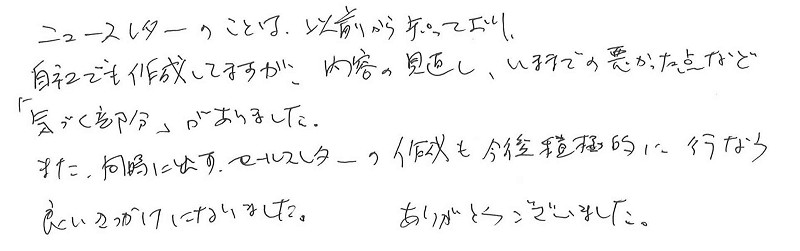 ニュースレターのことは、以前から知っており、
自社でも作成してますが、内容の見直し、いままでの悪かった点など
「気づく部分」がありました。
また、同時に出す、セールスレターの作成も今後積極的に行なう
良いきっかけになりました。 ありがとうございました。